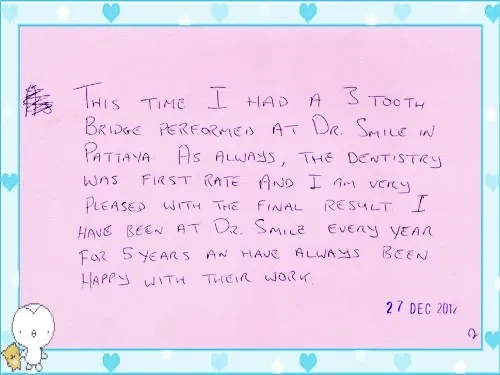 THIS TIME I HAD A 3 TOOTH
BRIDGE PERFORMED AT DR. SMILE IN
PATTAYA. AS ALWAYS, THE DENTISTRY
WAS FIRST RATE AND I AM VERY
PLEASED WITH THE FINAL RESULT I
HAVE BEEN AT DR. SMILE EVERY YEAR
FOR 5 YEARS AN HAVE ALWAYS BEEN
HAPPY WITH THEIR WORK.
27 DEC 2012